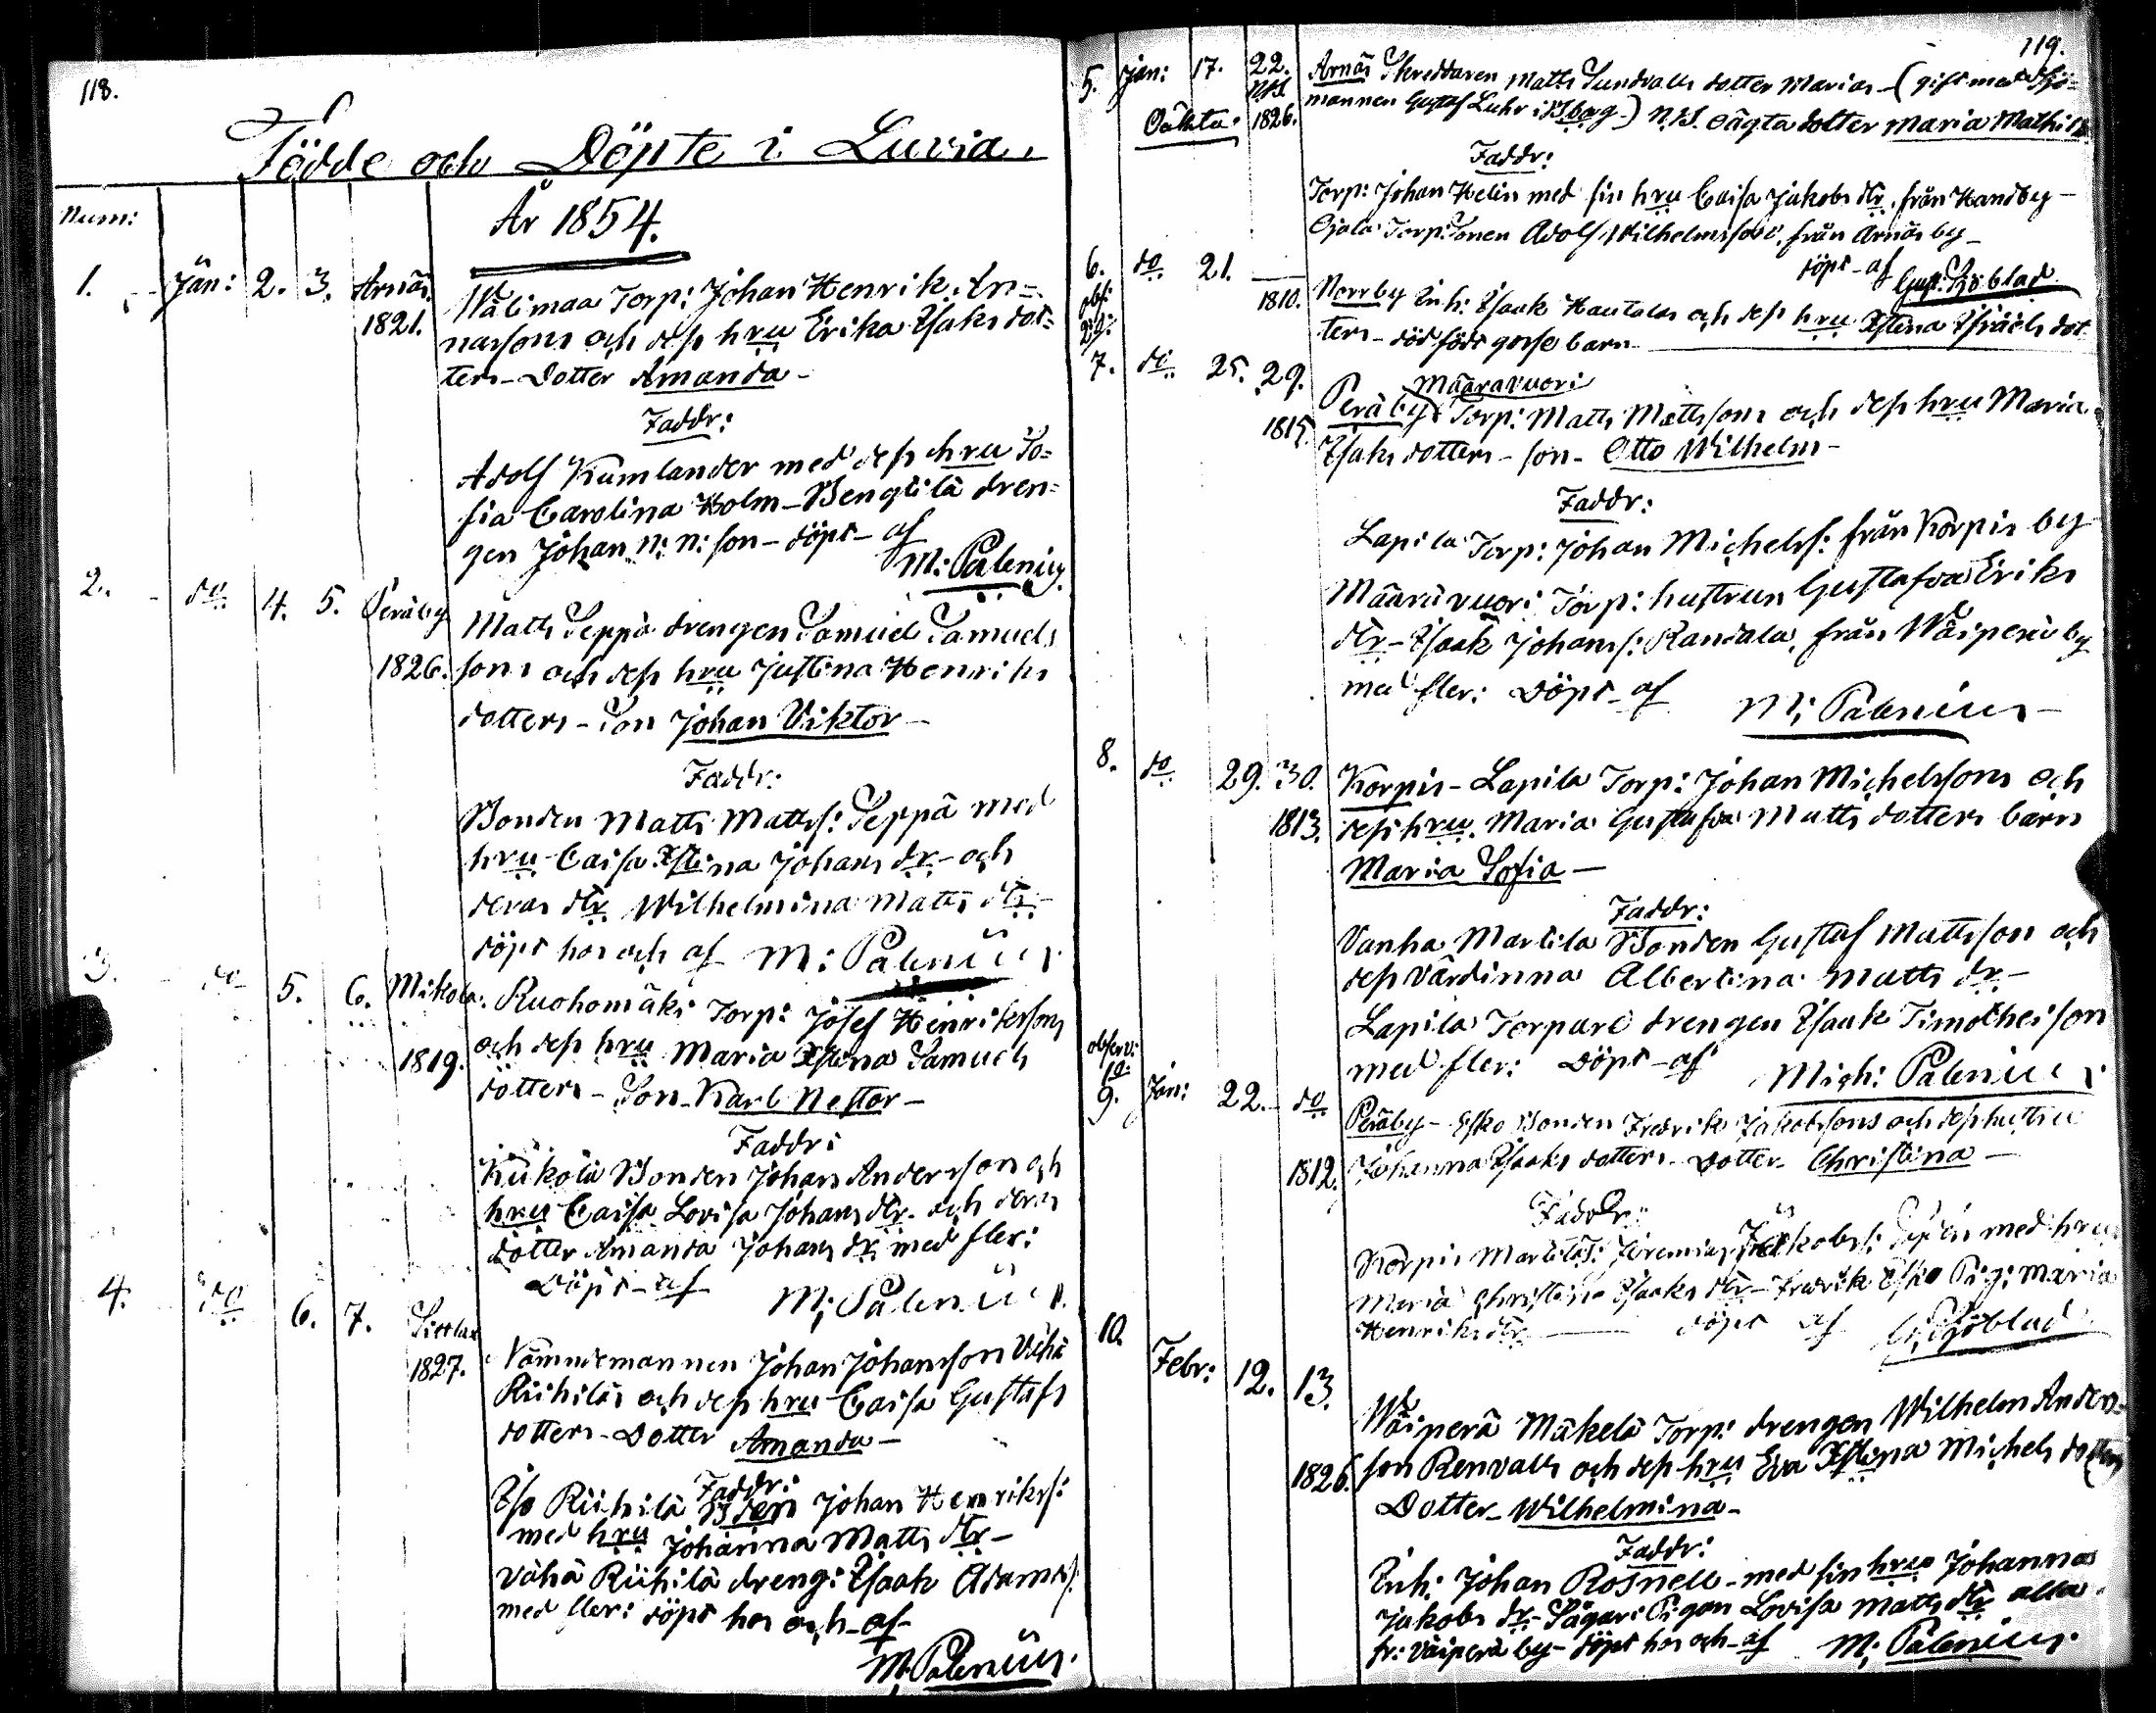 118.
Födde och Döpte i Luvia.
Num:
År 1854.
1. Jän: 2. 3. Arnäs Wälimaa Torp: Johan Henrik An=
1821. narsons och dess hru Erika Isaks dot=
ters - Dotter Amanda -
Faddr:
Adolf Kumlander med dess hru So=
fia Carolina Holm - Bengtilä dren=
gen Johan N: N: son - döpt - af
M: Palenius
2. do 4. 5. Peräby Matts Seppä drengen Samuel Samuels
1826. sons och dess hru Justina Henriks
dotters - Son Johan Viktor -
Faddr:
Bonden Matts Mattss: Seppä med
hru Caisa Xstina Johans dr - och
deras dtr Wilhelmina Matts dtr -
döpt hos och af M: Palenius
3. do 5. 6. Mikola. Ruohomäki Torp: Josef Henrikssons
1819. och dess hru Maria Xstina Samuels
dotters - Son - Karl Nestor -
Faddr:
Kukola Bonden Johan Andersson och
hru Caisa Lovisa Johans dtr och deras
dotter Amanda Johans dr med fler:
Döpt - af M: Palenius.
4. do 6. 7.
1827. Nämndemannen Johan Johansson Vähä
Riihiläs och dess hru Caisa Gustafs
dotters - Dotter Amanda -
Faddr:
Iso Riihilä Bden Johan Henrikss:
med hru Johanna Matts dtr -
Vähä Riihilä dreng: Isaak Adamss:
med fler: döpt hos och - af
M. Palenius.
119.
5. Jan: 17. 22. Arnäs Skreddaren Matts Sundvalls dotter Marias - (gift med Sjö=
NB mannen Gustaf Luhr i Bborg -) N.B. oägta dotter Maria Mathild
Oäkta. 1826.
Faddr:
Torp: Johan Helin med sin hru Caisa Jakobs dtr. från Handby -
Ojala Torp: Sonen Adolf Wilhelmsson, från Arnäs by -
döpt - af Gust: Sjöblad
6. do 21. —
obs: 1810. Norrby Inh: Isaak Hautalas och dess hru Xstina Israels dot
ters - dödfödt gosse barn
7. do 25. 29. Määravuori
1815. Peräby Torp: Matts Mattssons och dess hru Maria
Isaks dotters - son - Otto Wilhelm -
Faddr:
Lapila Torp: Johan Michelss: från Korpis by
Määrävuori Torp: hustrun Gustafva Eriks
dtr - Isaak Johanss: Randala, från Wäiperä by
med fler: Döpt - af M: Palenius -
8. do 29. 30. Korpis - Lapila Torp: Johan Michelssons och
1813. dess hru. Maria Gustafva Matts dotters barn
Maria Sofia -
Faddr:
Vanha Martila Bonden Gustaf Mattsson och
dess värdinna Albertina Matts dr -
Lapila Torpare drengen Isaak Timotheison
med fler: Döpt - af Mich: Palenius
observ:
9. Jan: 22. do Peräby - Esko Bonden Fredrik Jakobssons och dess hustru
1812. Johanna Isaaks dotters - Dotter - Christina -
Faddr:
Korpis Jeremias Jakobss: med hru
Maria Christina Isaaks dtr - Fredrik Esko Pig: Maria
Henriks dtr döpt af G: Sjöblad
10. Febr: 12. 13. Wäiperä Mäkelä Torp: drengen Wilhelm Anders=
1826. son Renvalls och dess hru Eva Xstina Michels dotters
Dotter - Wilhelmina -
Faddr:
Inh: Johan Rosnell - med sin hru Johanna
Jakobs dr - Sågar: Pigan Lovisa Matts dtr alla
fr: Väiperä by - döpt hos och - af M: Palenius.